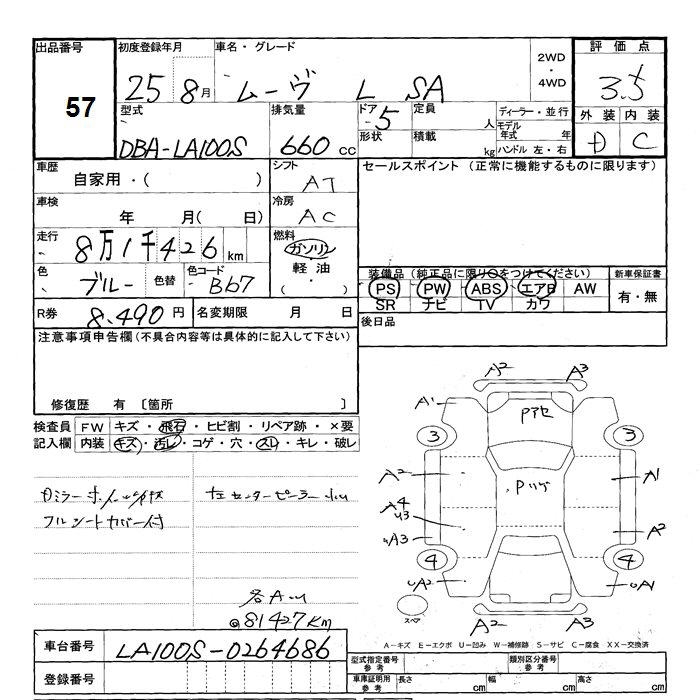 出品番号 初度登録年月 車名・グレード 2WD・4WD 評価点
57 25 8月 ムーヴ L SA 3.5
型式 排気量 ドア 定員 人 ディーラー・並行 外装 内装
DBA-LA100S 660cc 5 形状 積載 kg モデル年式 年 ハンドル 左・右 D C
車歴 自家用・( ) シフト AT セールスポイント (正常に機能するものに限ります)
車検 年 月( 日) 冷房 AC
走行 8万1千426km 燃料 ガソリン 軽油 (・)
色 ブルー 色替 色コード B67 装備品(純正品に限り○をつけてください) 新車保証書
PS PW ABS エアB AW 有・無
SR ナビ TV カワ
R券 8.490円 名変期限 月 日 後日品
注意事項申告欄(不具合内容等は具体的に記入して下さい)
修復歴 有 〔箇所 〕
検査員 FW キズ・飛石・ヒビ割・リペア跡・×要
記入欄 内装 キズ・汚レ・コゲ・穴・スレ・キレ・破レ
フルシートカバー付
@81427km
A2 A3
A1 Pアセ
3 3
A2 A1
A4
A3 A2
4 4
A2 A1
スペア A2 A3
A-キズ E-エクボ U-凹み W-補修跡 S-サビ C-腐食 XX-交換済
車台番号 LA100S-0264686
登録番号
型式指定番号 参考 類別区分番号 参考
車庫証明用 参考 長さ cm 幅 cm 高さ cm